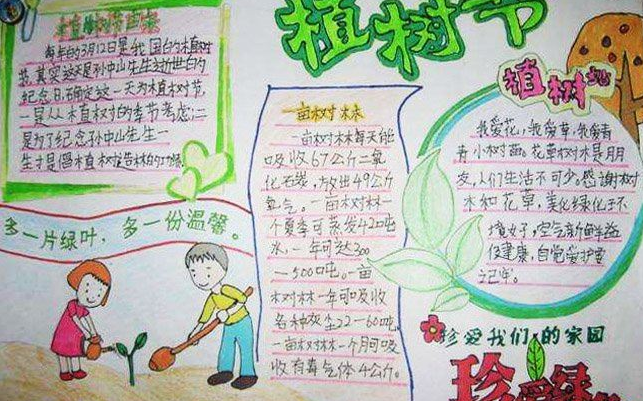 植树节
植树节的由来
每年的3月12日是我国的植树
节,其实这天是孙中山先生逝世的
纪念日,确定这一天为植树节,
一是从植树的季节考虑;二
是为了纪念孙中山先生一
生才是倡植树造林的功绩
多一片绿叶,多一份温馨。
一亩树林
一亩树林每天能
吸收67公斤二氧
化石炭,放出49公斤
氧气。一亩树林一
个夏季可蒸发42吨
水,一年可达300
—500吨。一亩
树林一年可吸收
各种灰尘22—60吨
一亩树林一个月可吸
收有毒气体4公斤。
植树
我爱花,我爱草,我爱青
青小树苗。花草树木是朋
友,人们生活不可少。感谢树
木和花草,美化绿化于不
境好,空气新鲜益
健康,自觉爱护要
记牢。
珍爱我们的家园
珍爱绿